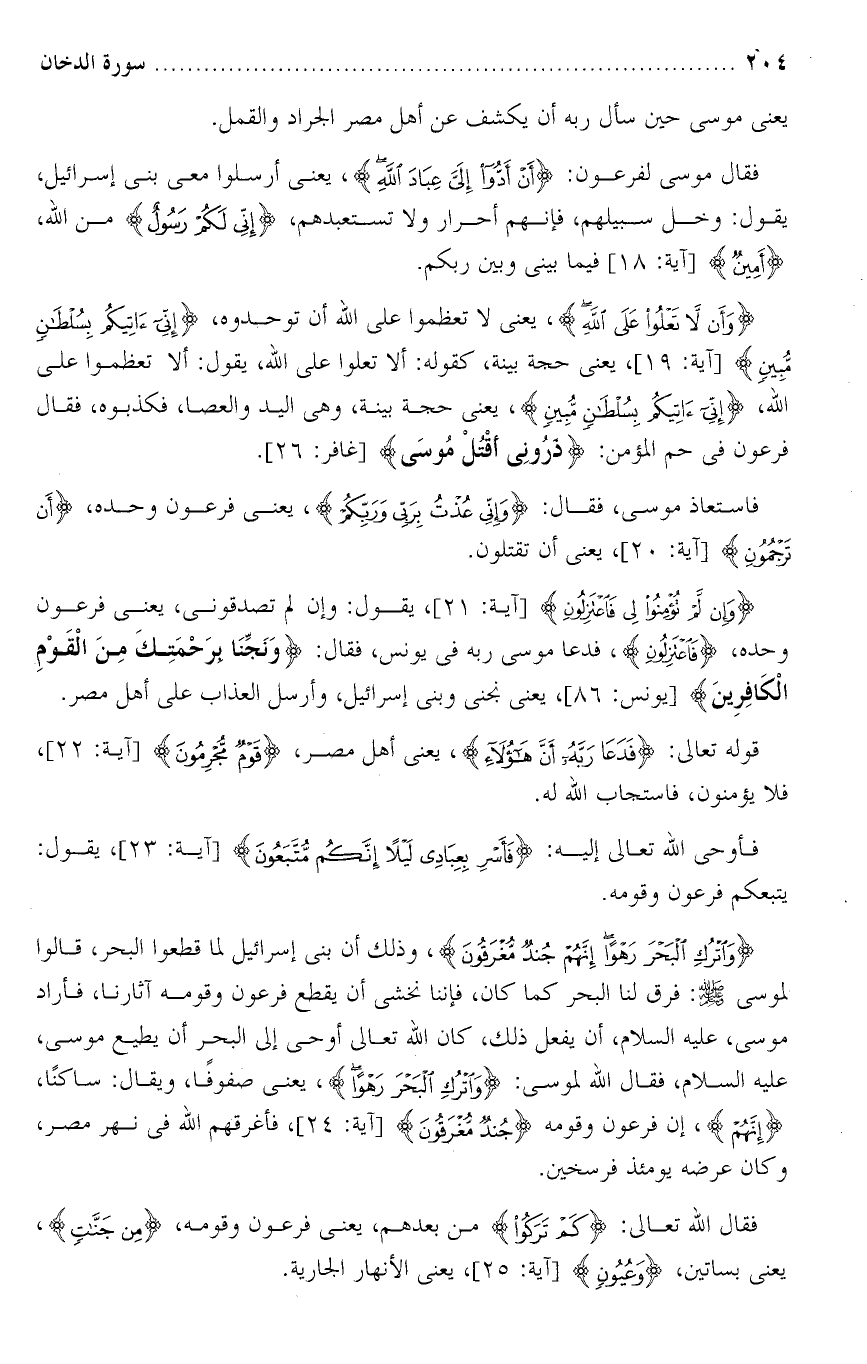 ٢٠٤ ........................................................................ سورة الدخان
يعنى موسى حين سأل ربه أن يكشف عن أهل مصر الجراد والقمل.
فقال موسى لفرعون: ﴿أَنْ أَدُّوٓا۟ إِلَىَّ عِبَادَ ٱللَّهِۖ﴾، يعنى أرسلوا معى بنى إسرائيل،
يقول: وخل سبيلهم، فإنهم أحرار ولا تستعبدهم، ﴿إِنِّى لَكُمْ رَسُولٌ﴾ من الله،
﴿أَمِينٌ﴾ [آية: ١٨] فيما بينى وبين ربكم.
﴿وَأَن لَّا تَعْلُوا۟ عَلَى ٱللَّهِۖ﴾، يعنى لا تعظموا على الله أن توحدوه، ﴿إِنِّىٓ ءَاتِيكُم بِسُلْطَٰنٍ
مُّبِينٍ﴾ [آية: ١٩]، يعنى حجة بينة، كقوله: ألا تعلوا على الله، يقول: ألا تعظموا على
الله، ﴿إِنِّىٓ ءَاتِيكُم بِسُلْطَٰنٍ مُّبِينٍ﴾، يعنى حجة بينة، وهى اليد والعصا، فكذبوه، فقال
فرعون فى حم المؤمن: ﴿ذَرُونِى أَقْتُلْ مُوسَى﴾ [غافر: ٢٦].
فاستعاذ موسى، فقال: ﴿وَإِنِّى عُذْتُ بِرَبِّى وَرَبِّكُمْ﴾، يعنى فرعون وحده، ﴿أَن
تَرْجُمُونِ﴾ [آية: ٢٠]، يعنى أن تقتلون.
﴿وَإِن لَّمْ تُؤْمِنُوا۟ لِى فَٱعْتَزِلُونِ﴾ [آية: ٢١]، يقول: وإن لم تصدقونى، يعنى فرعون
وحده، ﴿فَٱعْتَزِلُونِ﴾، فدعا موسى ربه فى يونس، فقال: ﴿وَنَجِّنَا بِرَحْمَتِكَ مِنَ الْقَوْمِ
الْكَافِرِينَ﴾ [يونس: ٨٦]، يعنى نجنى وبنى إسرائيل، وأرسل العذاب على أهل مصر.
قوله تعالى: ﴿فَدَعَا رَبَّهُۥٓ أَنَّ هَٰٓؤُلَآءِ﴾، يعنى أهل مصر، ﴿قَوْمٌ مُّجْرِمُونَ﴾ [آية: ٢٢]،
فلا يؤمنون، فاستجاب الله له.
فأوحى الله تعالى إليه: ﴿فَأَسْرِ بِعِبَادِى لَيْلًا إِنَّكُم مُّتَّبَعُونَ﴾ [آية: ٢٣]، يقول:
يتبعكم فرعون وقومه.
﴿وَٱتْرُكِ ٱلْبَحْرَ رَهْوًاۖ إِنَّهُمْ جُندٌ مُّغْرَقُونَ﴾، وذلك أن بنى إسرائيل لما قطعوا البحر، قالوا
لموسى ﷺ: فرق لنا البحر كما كان، فإننا نخشى أن يقطع فرعون وقومه آثارنا، فأراد
موسى، عليه السلام، أن يفعل ذلك، كان الله تعالى أوحى إلى البحر أن يطيع موسى،
عليه السلام، فقال الله لموسى: ﴿وَٱتْرُكِ ٱلْبَحْرَ رَهْوًاۖ﴾، يعنى صفوفًا، ويقال: ساكنًا،
﴿إِنَّهُمْ﴾، إن فرعون وقومه ﴿جُندٌ مُّغْرَقُونَ﴾ [آية: ٢٤]، فأغرقهم الله فى نهر مصر،
وكان عرضه يومئذ فرسخين.
فقال الله تعالى: ﴿كَمْ تَرَكُوا۟﴾ من بعدهم، يعنى فرعون وقومه، ﴿مِن جَنَّٰتٍ﴾،
يعنى بساتين، ﴿وَعُيُونٍ﴾ [آية: ٢٥]، يعنى الأنهار الجارية.